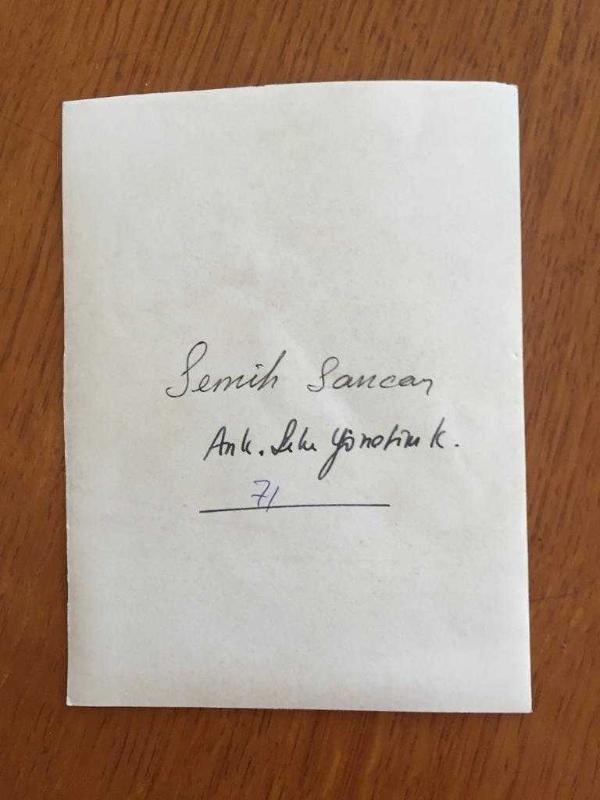 Semih Sancar
Ank. Sıkı Yönetim K.
71